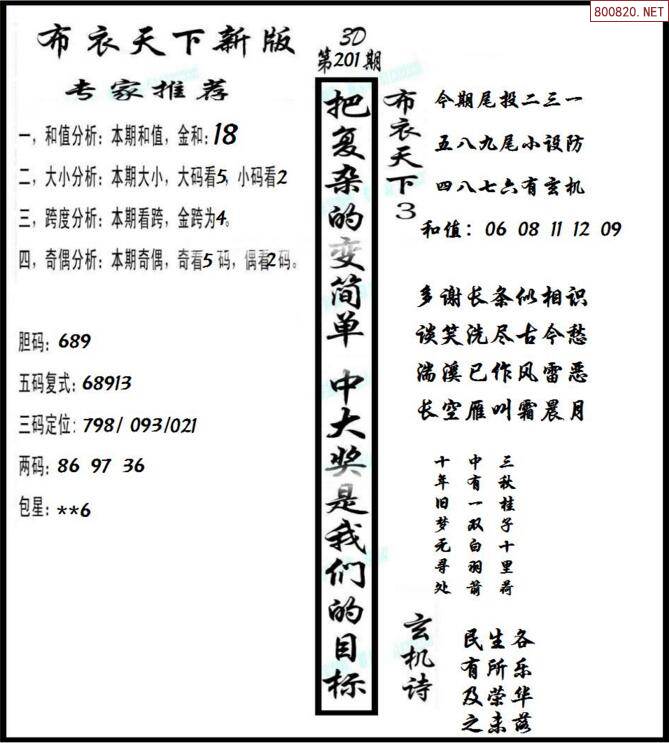 800820.NET
布衣天下新版
专家推荐
一，和值分析：本期和值，金和：18
二，大小分析：本期大小，大码看5，小码看2
三，跨度分析：本期看跨，金跨为4。
四，奇偶分析：本期奇偶，奇看5码，偶看2码。
胆码：689
五码复式：68913
三码定位：798/ 093/021
两码：86 97 36
包星：**6
3D
第201期
把复杂的变简单 中大奖是我们的目标
布衣天下3
今期尾投二三一
五八九尾小设防
四八七六有玄机
和值：06 08 11 12 09
多谢长条似相识
谈笑洗尽古今愁
湍溪已作风雷恶
长空雁叫霜晨月
三秋桂子十里荷
中有一双白羽箭
十年旧梦无寻处
玄机诗
民生各
有所乐
及荣华
之未落